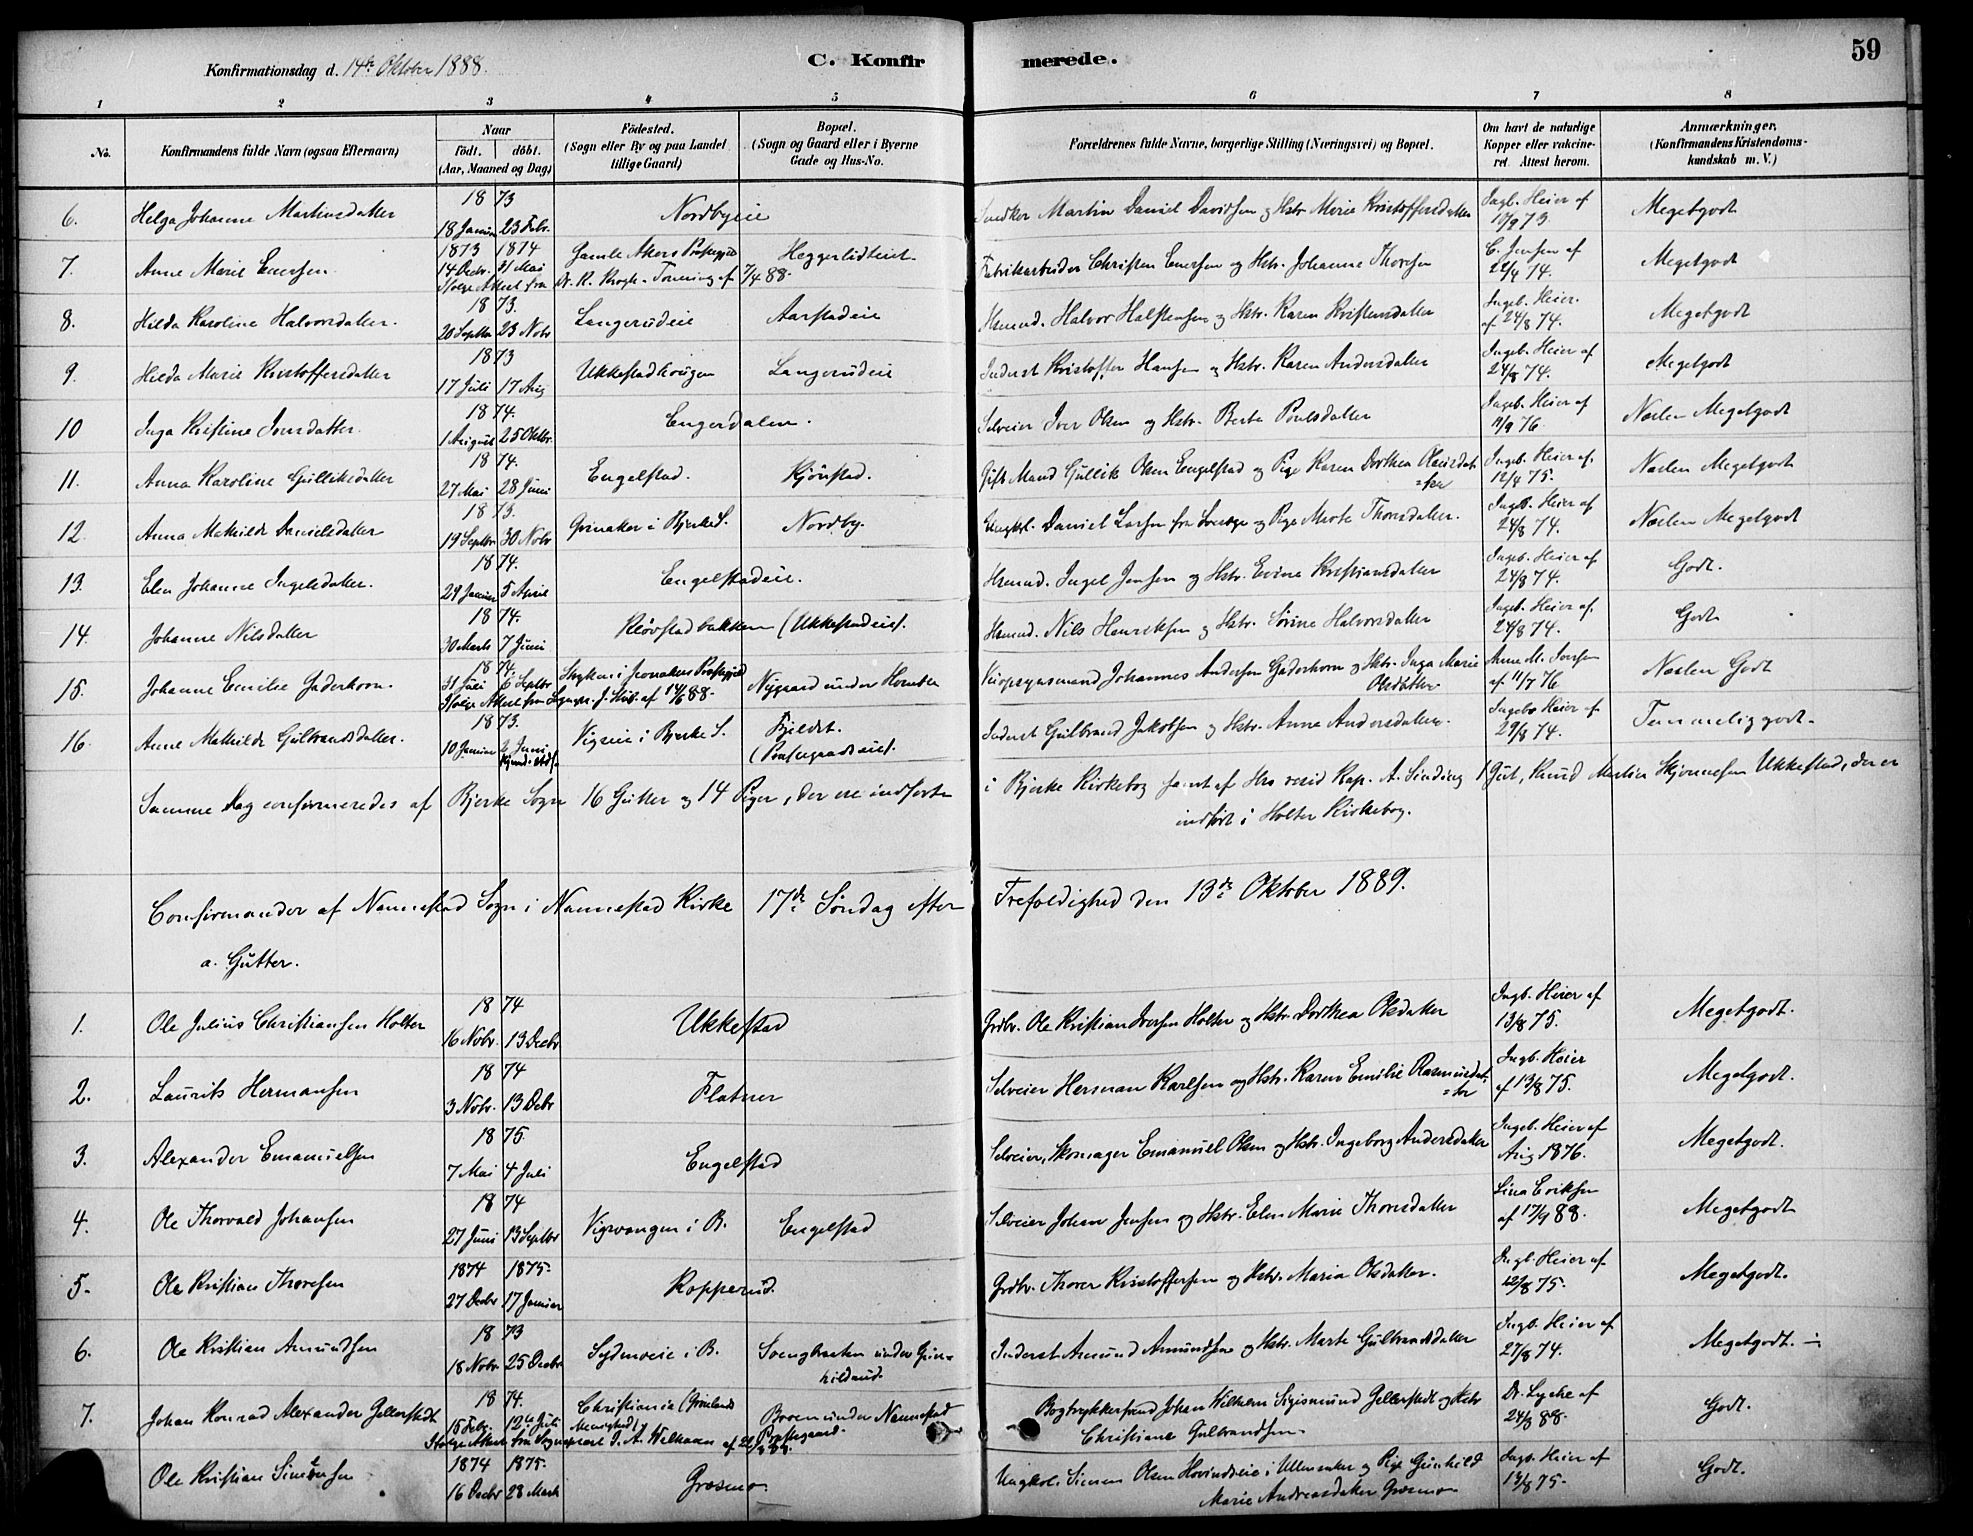 59
Konfirmationsdag d. 14de Oktober 1888.
C. Konfirmerede.
1 2 3 4 5 6 7 8
No.
Konfirmandens fulde Navn (ogsaa Efternavn)
Naar
født. døbt.
(Aar, Maaned og Dag)
Fødested.
(Sogn eller By og paa Landet tillige Gaard)
Bopæl.
(Sogn og Gaard eller i Byerne Gade og Hus-No.
Forældrenes fulde Navne, borgerlige Stilling (Næringsvei) og Bopæl.
Om havt de naturlige Kopper eller vakcineret. Attest herom.
Anmærkninger.
(Konfirmandens Kristendomskundskab m. V.)
6. Helga Johanne Martinsdatter 1873 18 Januar 23 Febr. Nordbyeie Snedker Martin Daniel Davidsen og Hstr Marie Kristoffersdatter Ingb. Heier af 17/9 73. Megetgodt
7. Anne Marie Enersen. 1873 14 Decbr. 1874 31 Mai Gamle Akers Præstegjeld Heggerlidteiet Fabrikarbeider Christen Enersen og Hstr. Johanne Thoresen C. Jensen af 22/4 74. Megetgodt
Ifølge Attest fra Dr. K. Krogh-Tonning af 7/4 88.
8. Hilda Karoline Halvorsdatter. 1873. 20 Septbr 23 Nobr Langerudeie Aarstadeie Hsmnd. Halvor Halstensen og Hstr. Karen Kristensdatter Ingeb. Heier. af 24/8 74. Megetgodt
9. Hilda Marie Kristoffersdatter 1873 17 Juli 17 Aug Ukkestadhougen Langerudeie Inderst Kristoffer Hansen og Hstr. Karen Andersdatter Ingeb. Heier af 24/8 74. Megetgodt
10 Inga Kristine Iversdatter. 1874. 1 August 25 Oktbr. Engerdalen. Selveier Iver Olsen og Hstr. Berte Poulsdatter Ingeb. Heier af 11/9 76. Næsten Megetgodt
11. Anna Karoline Gulliksdatter 1874. 27 Mai 28 Juni Engelstad. Kjønstad. Gift Mand Gullik Olsen Engelstad og Pige Karen Dorthea Olausdatter Ingeb. Heier af. 12/4 75. Næsten Megetgodt
12. Anna Mathilde Danielsdatter 1873. 19 Septbr 30 Nobr Grinaker i Bjerke S. Nordby. Ungkl. Daniel Larsen fra Sverige og Pige Marte Thorsdatter. Ingeb. Heier af 24/8 74. Næsten Megetgodt
13. Elen Johanne Ingelsdatter. 1874. 29 Januar 5 April Engelstadeie. Hsmnd. Ingel Jensen og Hstr. Evine Kristiansdatter Ingeb. Heier af 24/8 74. Godt.
14. Johanne Nilsdatter 1874. 30 Marts 7 Juni Kløvstadbakken (Ukkestadeie). Hsmnd. Nils Henriksen og Hstr. Sørine Halvorsdatter Ingeb. Heier af. 24/8 74. Godt
15. Johanne Emilie Gaderhorn. 1874. 31 Juli 6 Septbr Stryken i Jevnakers Præstegjeld Nygaard under Horndte Johannes Andersen Gaderhorn og Hstr. Inga Marie Olsdatter Anne M. af 11/7 76 Næsten Godt
Ifølge Attest fra Sognepr. J. af 14/6 88.
16. Anne Mathilde Gulbrandsdatter. 1873. 10 Januar 2 Juni Vigseie i Bjerke S. Fjeldst. (Præstegaardseie). Inderst Gulbrand Jakobsen og Hstr. Anne Andersdatter. Ingeb. Heier af 29/8 74. Temmelig godt.
Samme Dag confirmeredes af Bjerke Sogn 16 Gutter og 14 Piger, der ere indførte i Bjerke Kirkebog samt af Hrr resid Kap. A. Sinding 1 Gut, Knud Martin Skjønnesen Ukkestad, der er
indført i Holter Kirkebog.
Confirmander af Nannestad Sogn i Nannestad Kirke 17de Søndag efter Trefoldighed den 13de Oktober 1889.
a. Gutter.
1. Ole Julius Christiansen Holter 1874 16 Nobr. 13 Decbr Ukkestad Grdbr. Ole Kristian Iversen Holter og Hstr. Dorthea Olsdatter Ingb. Heier af 13/8 75. Megetgodt.
2. Laurits Hermansen 1874 3 Nobr. 13 Debr Flatner Selveier Herman Karlsen og Hstr. Karen Emilie Rasmusdatter Ingb. Heier af 13/8 75. Megetgodt.
3. Alexander Emanuelsen 1875. 7 Mai 4 Juli Engelstad Selveier, Skomager Emanuel Olsen og Hstr. Ingeborg Andersdatter Ingeb. Heier af Aug 1876. Megetgodt.
4. Ole Thorvald Johansen 1874 27 Juni 13 Septbr Vigsvangen i B. Engelstad Selveier Johan Jensen og Hstr. Elen Marie Thorsdatter Lina Eriksen af 17/9 88. Megetgodt
5. Ole Kristian Thoresen 1874 27 Decbr 1875. 17 Januar Kopperud. Grdbr. Thorer Kristoffersen og Hstr. Maria Olsdatter. Ingb. Heier af 12/8 75. Megetgodt.
6. Ole Kristian Amundsen 1873 18 Nobr. 25 Decbr Sydmoeie i B. Svengbraaten under Gunhildrud. Inderst Amund Amundsen og Hstr. Marte Gulbrandsdatter Ingb. Heier af 27/8 74. Megetgodt.
7. Johan Konrad Alexander Gellerstedt 1874. 15 Febr. 12te Juli Christiania (Grønlands Menighed) Broen under Nannestad Præstegaard. Bogtrykkersvend Johan Wilhelm Sigismund Gellerstedt og Hstr Christiane Gulbrandsen. Dr. Lyche af 24/3 88. Godt.
Ifølge Attest fra Sognepræst J. A. Welhaven af
Ole Kristian Simensen 1874 16 Decbr 1875. 28 Marts Græsmo. Ungkl. Simen Olsen Hovindseie i Ullensaker og Pige Gunhild Marie Andreasdatter Græsmo Ingb. Heier af 13/8 75. Godt.